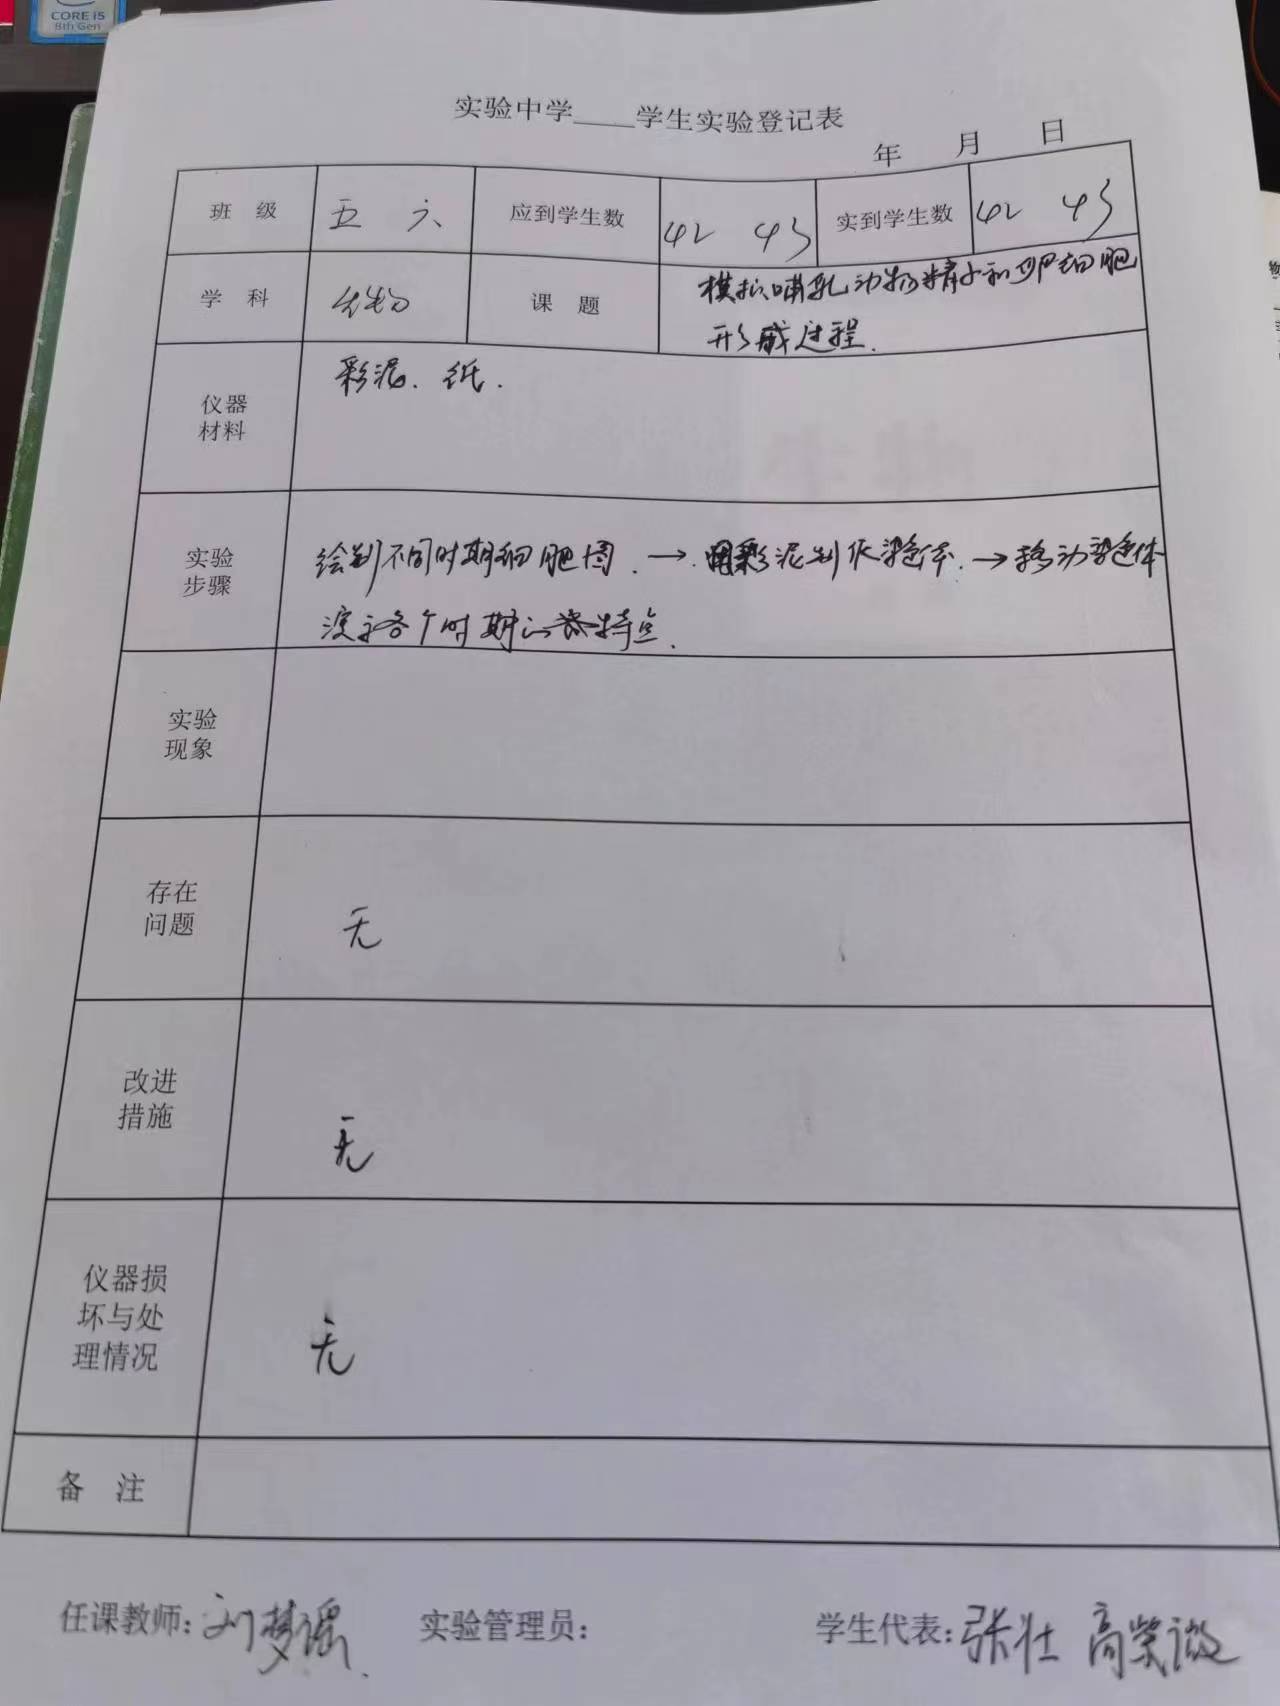 CORE i5
8th Gen
实验中学____学生实验登记表
年 月 日
班 级 五 六 应到学生数 42 43 实到学生数 42 43
学 科 生物 课 题 模拟哺乳动物精子和卵细胞
形成过程.
仪器
材料
彩泥、纸.
实验
步骤
绘制不同时期细胞图. → 用彩泥制作染色体. → 移动染色体
演示各个时期的特点.
实验
现象
存在
问题
无
改进
措施
无
仪器损
坏与处
理情况
无
备 注
任课教师: 刘梦谣 实验管理员: 学生代表: 张壮 高紫